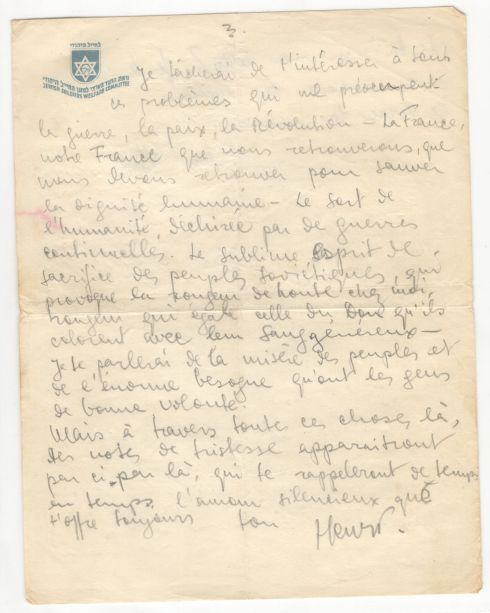 3.
לחייל היהודי
JEWISH SOLDIERS WELFARE COMMITTEE
Je tâcherai de t'intéresser à tous
ces problèmes qui me préoccupent
la guerre, la paix, la Révolution – La France,
notre France que nous retrouverons, que
nous devons retrouver pour sauver
la dignité humaine – Le sort de
l'humanité, déchirée par de guerres
continuelles. Le sublime esprit de
sacrifice des peuples soviétiques, qui
provoque la rougeur de honte chez moi,
rougeur qui égale celle du Don qu'ils
colorent avec leur sang généreux –
Je te parlerai de la misère des peuples et
de l'énorme besogne qu'ont les gens
de bonne volonté.
Mais à travers toutes ces choses là,
des notes de tristesse apparaitront
par ci par là, qui te rappeleront de temps
en temps l'amour silencieux que
t'offre toujours ton Henri.